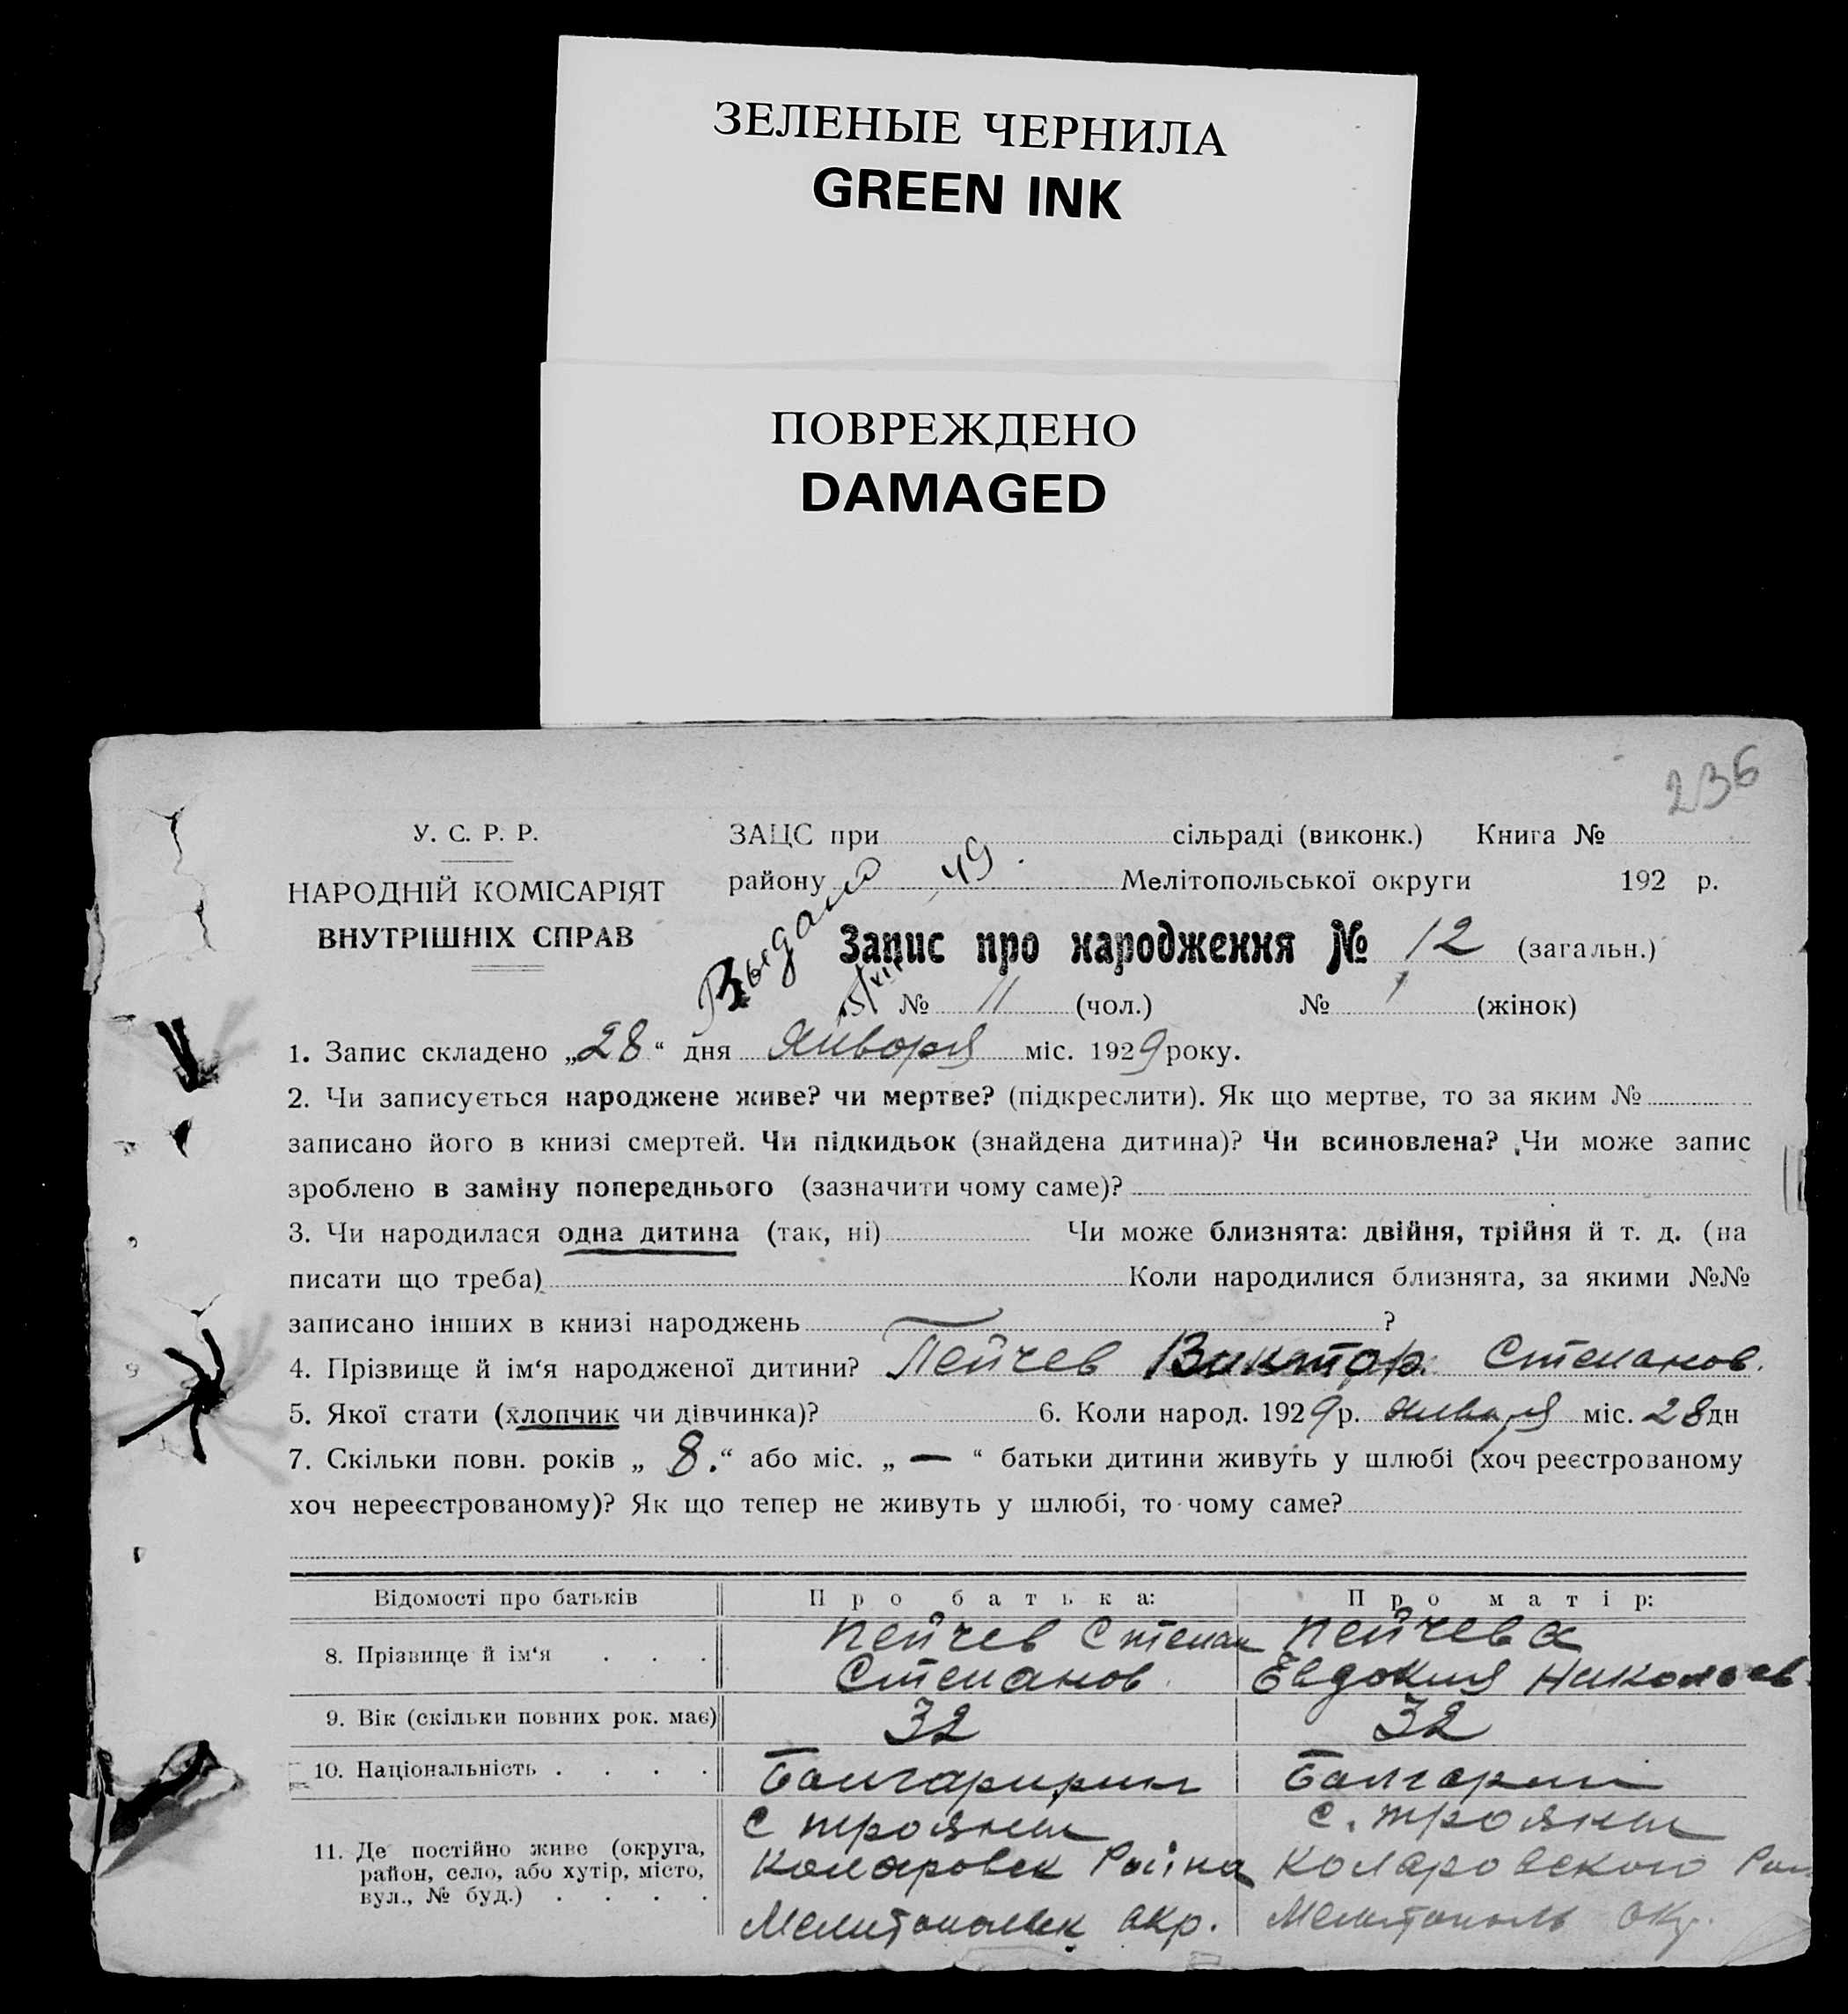 ЗЕЛЕНЫЕ ЧЕРНИЛА
GREEN INK
ПОВРЕЖДЕНО
DAMAGED
236
У. С. Р. Р.
НАРОДНІЙ КОМІСАРІЯТ
ВНУТРІШНІХ СПРАВ
ЗАЦС при сільраді (виконк.) Книга №
району Мелітопольської округи 192 р.
Выдано 49
Запис про народження № 12 (загальн.)
№ 11 (чол.) № (жінок)
1. Запис складено „28“ дня Января міс. 1929 року.
2. Чи записується народжене живе? чи мертве? (підкреслити). Як що мертве, то за яким №
записано його в книзі смертей. Чи підкидьок (знайдена дитина)? Чи всиновлена? Чи може запис
зроблено в заміну попереднього (зазначити чому саме)?
3. Чи народилася одна дитина (так, ні) Чи може близнята: двійня, трійня й т. д. (на
писати що треба) Коли народилися близнята, за якими №№
записано інших в книзі народжень ?
4. Прізвище й ім‘я народженої дитини? Пейчев Виктор Степанов.
5. Якої стати (хлопчик чи дівчинка)? 6. Коли народ. 1929 р. января міс. 28 дн
7. Скільки повн. років „ 8. “ або міс. „ — “ батьки дитини живуть у шлюбі (хоч реєстрованому
хоч нереєстрованому)? Як що тепер не живуть у шлюбі, то чому саме?
Відомості про батьків Про батька: Про матір:
8. Прізвище й ім‘я . . . Пейчев Степан Пейчева
Степанов Евдокия Николаев
9. Вік (скільки повних рок. має) 32 32
10. Національність . . . . Болгарин Болгарин
11. Де постійно живе (округа, район, село, або хутір, місто, вул., № буд.) . . . .
С трояны с. трояны
Коларовск Района Коларовского
Мелитопольск окр. Мелитополь окр.